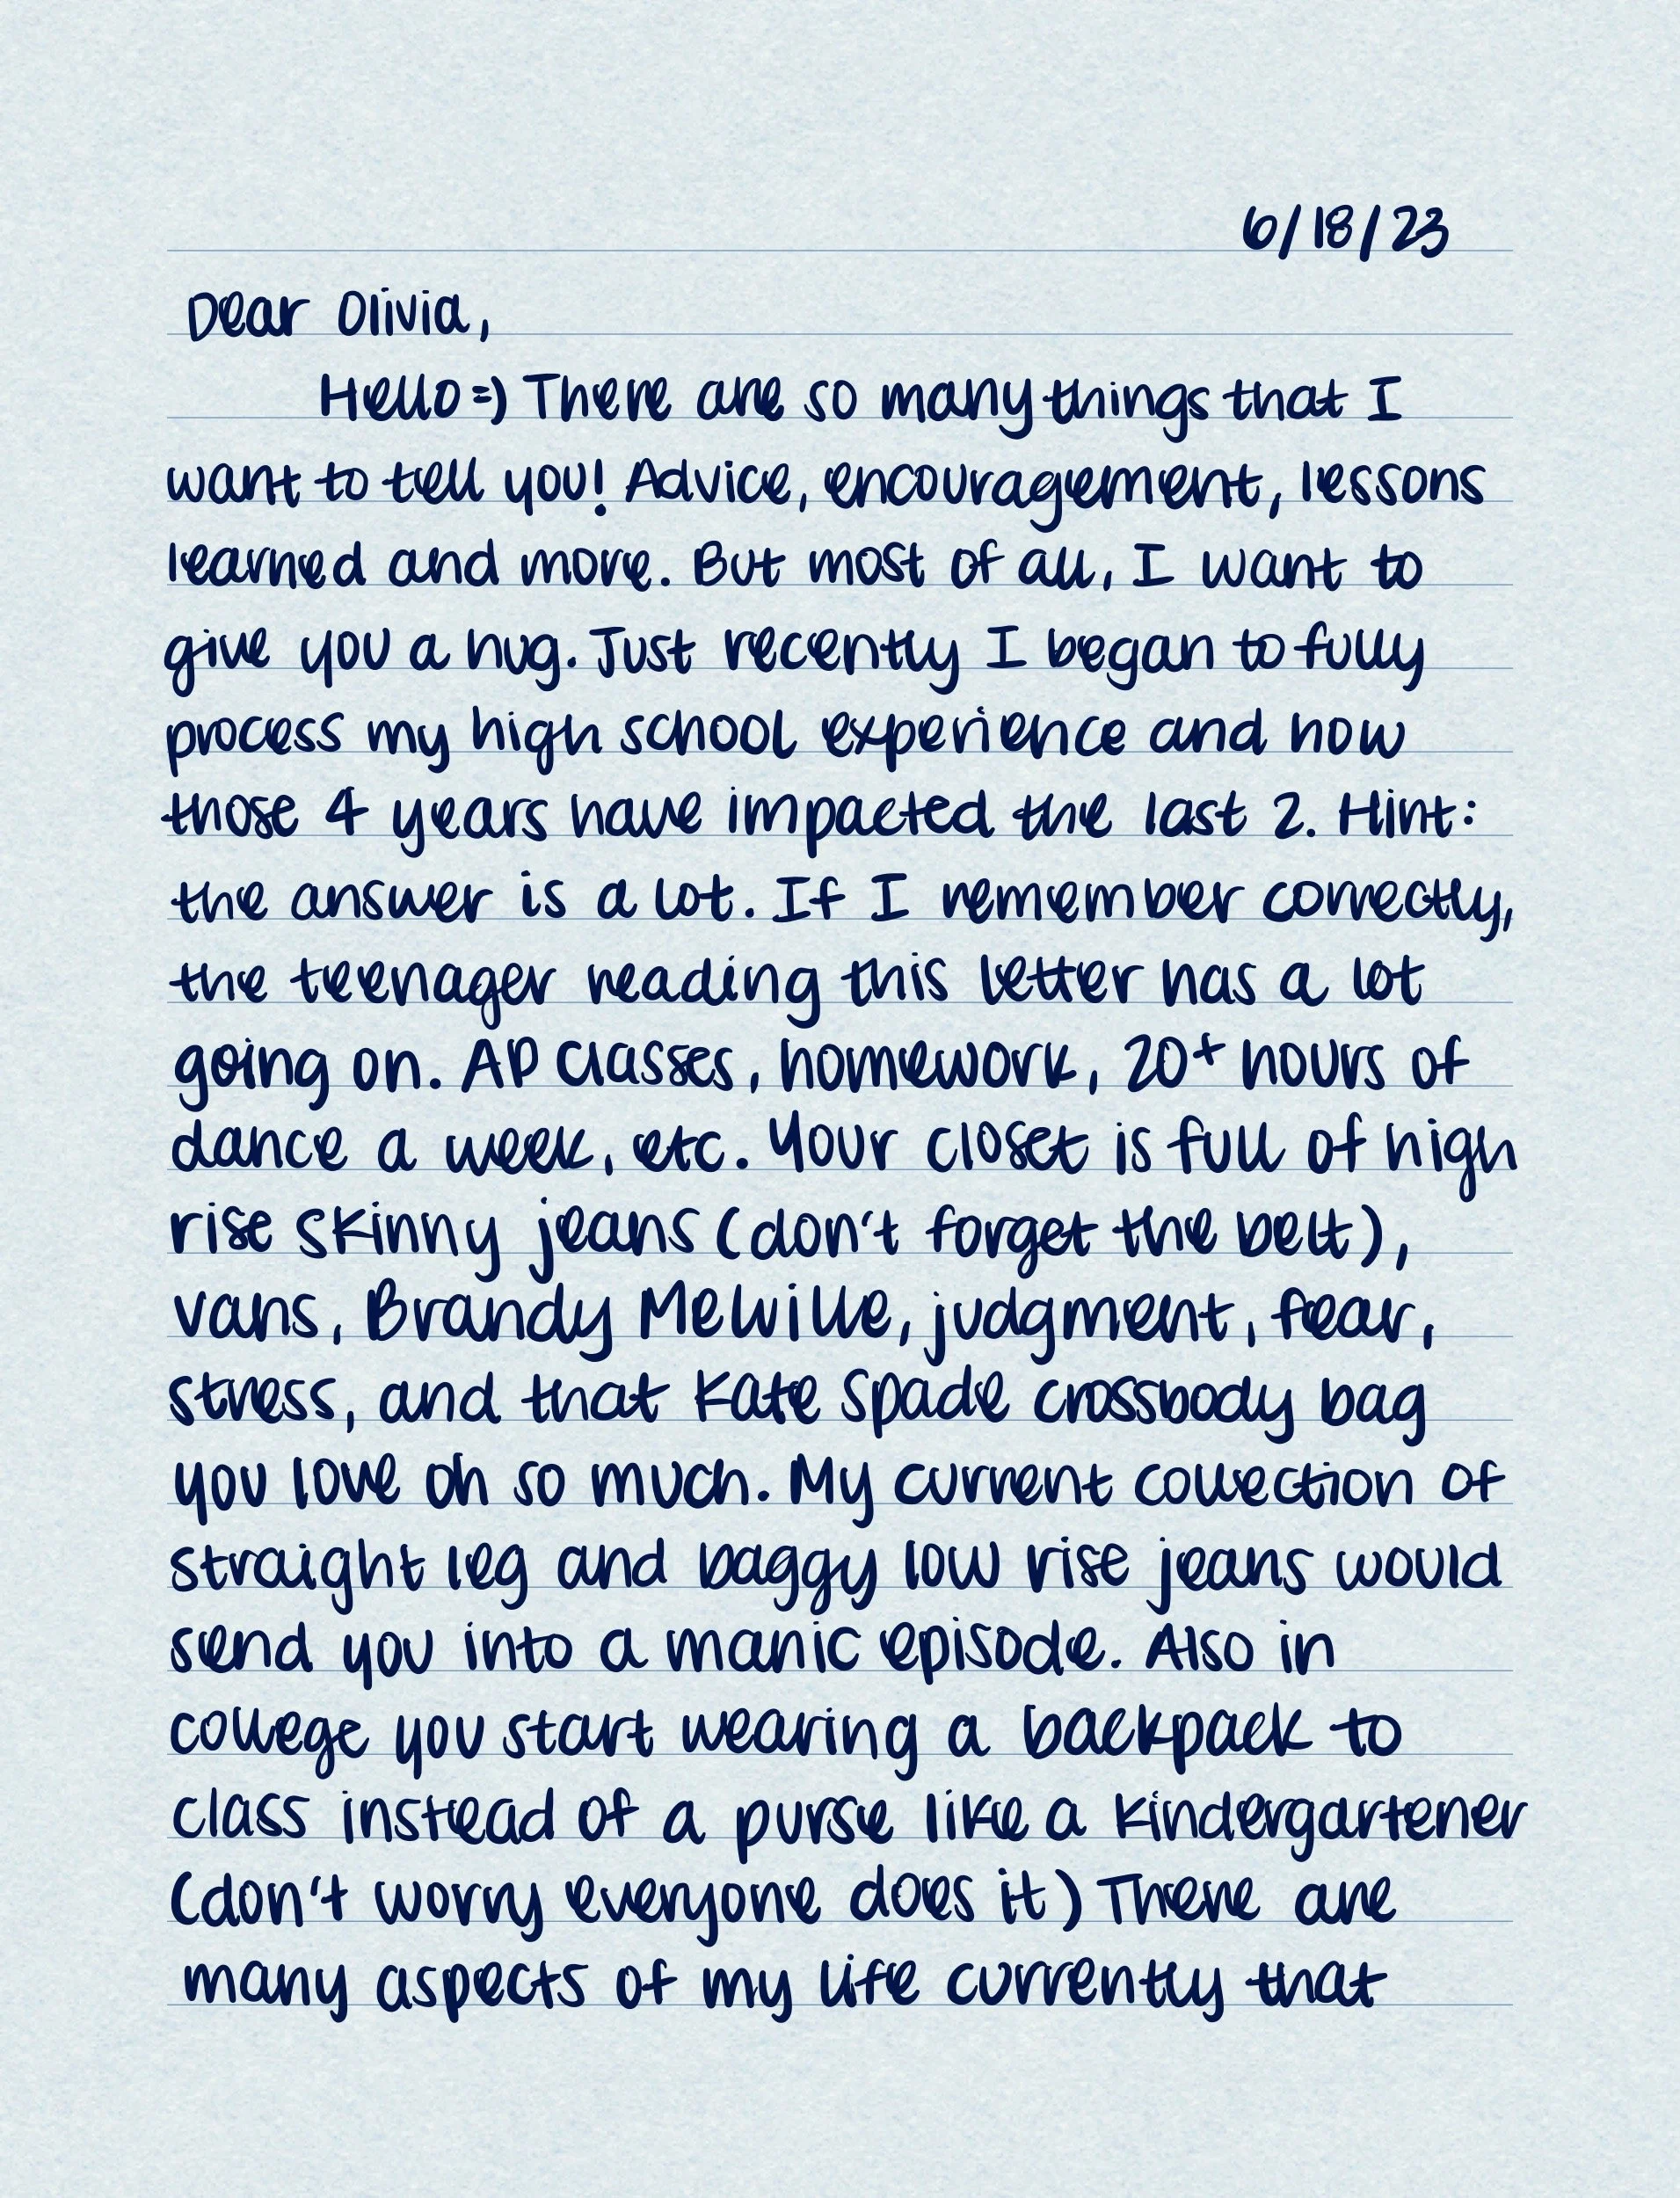 6/18/23
Dear Olivia,
Hello =) There are so many things that I
want to tell you! Advice, encouragement, lessons
learned and more. But most of all, I want to
give you a hug. Just recently I began to fully
process my high school experience and how
those 4 years have impacted the last 2. Hint:
the answer is a lot. If I remember correctly,
the teenager reading this letter has a lot
going on. AP classes, homework, 20+ hours of
dance a week, etc. Your closet is full of high
rise skinny jeans (don't forget the belt),
vans, Brandy Melville, judgment, fear,
stress, and that Kate Spade crossbody bag
you love oh so much. My current collection of
straight leg and baggy low rise jeans would
send you into a manic episode. Also in
college you start wearing a backpack to
class instead of a purse like a kindergartener
(don't worry everyone does it) There are
many aspects of my life currently that